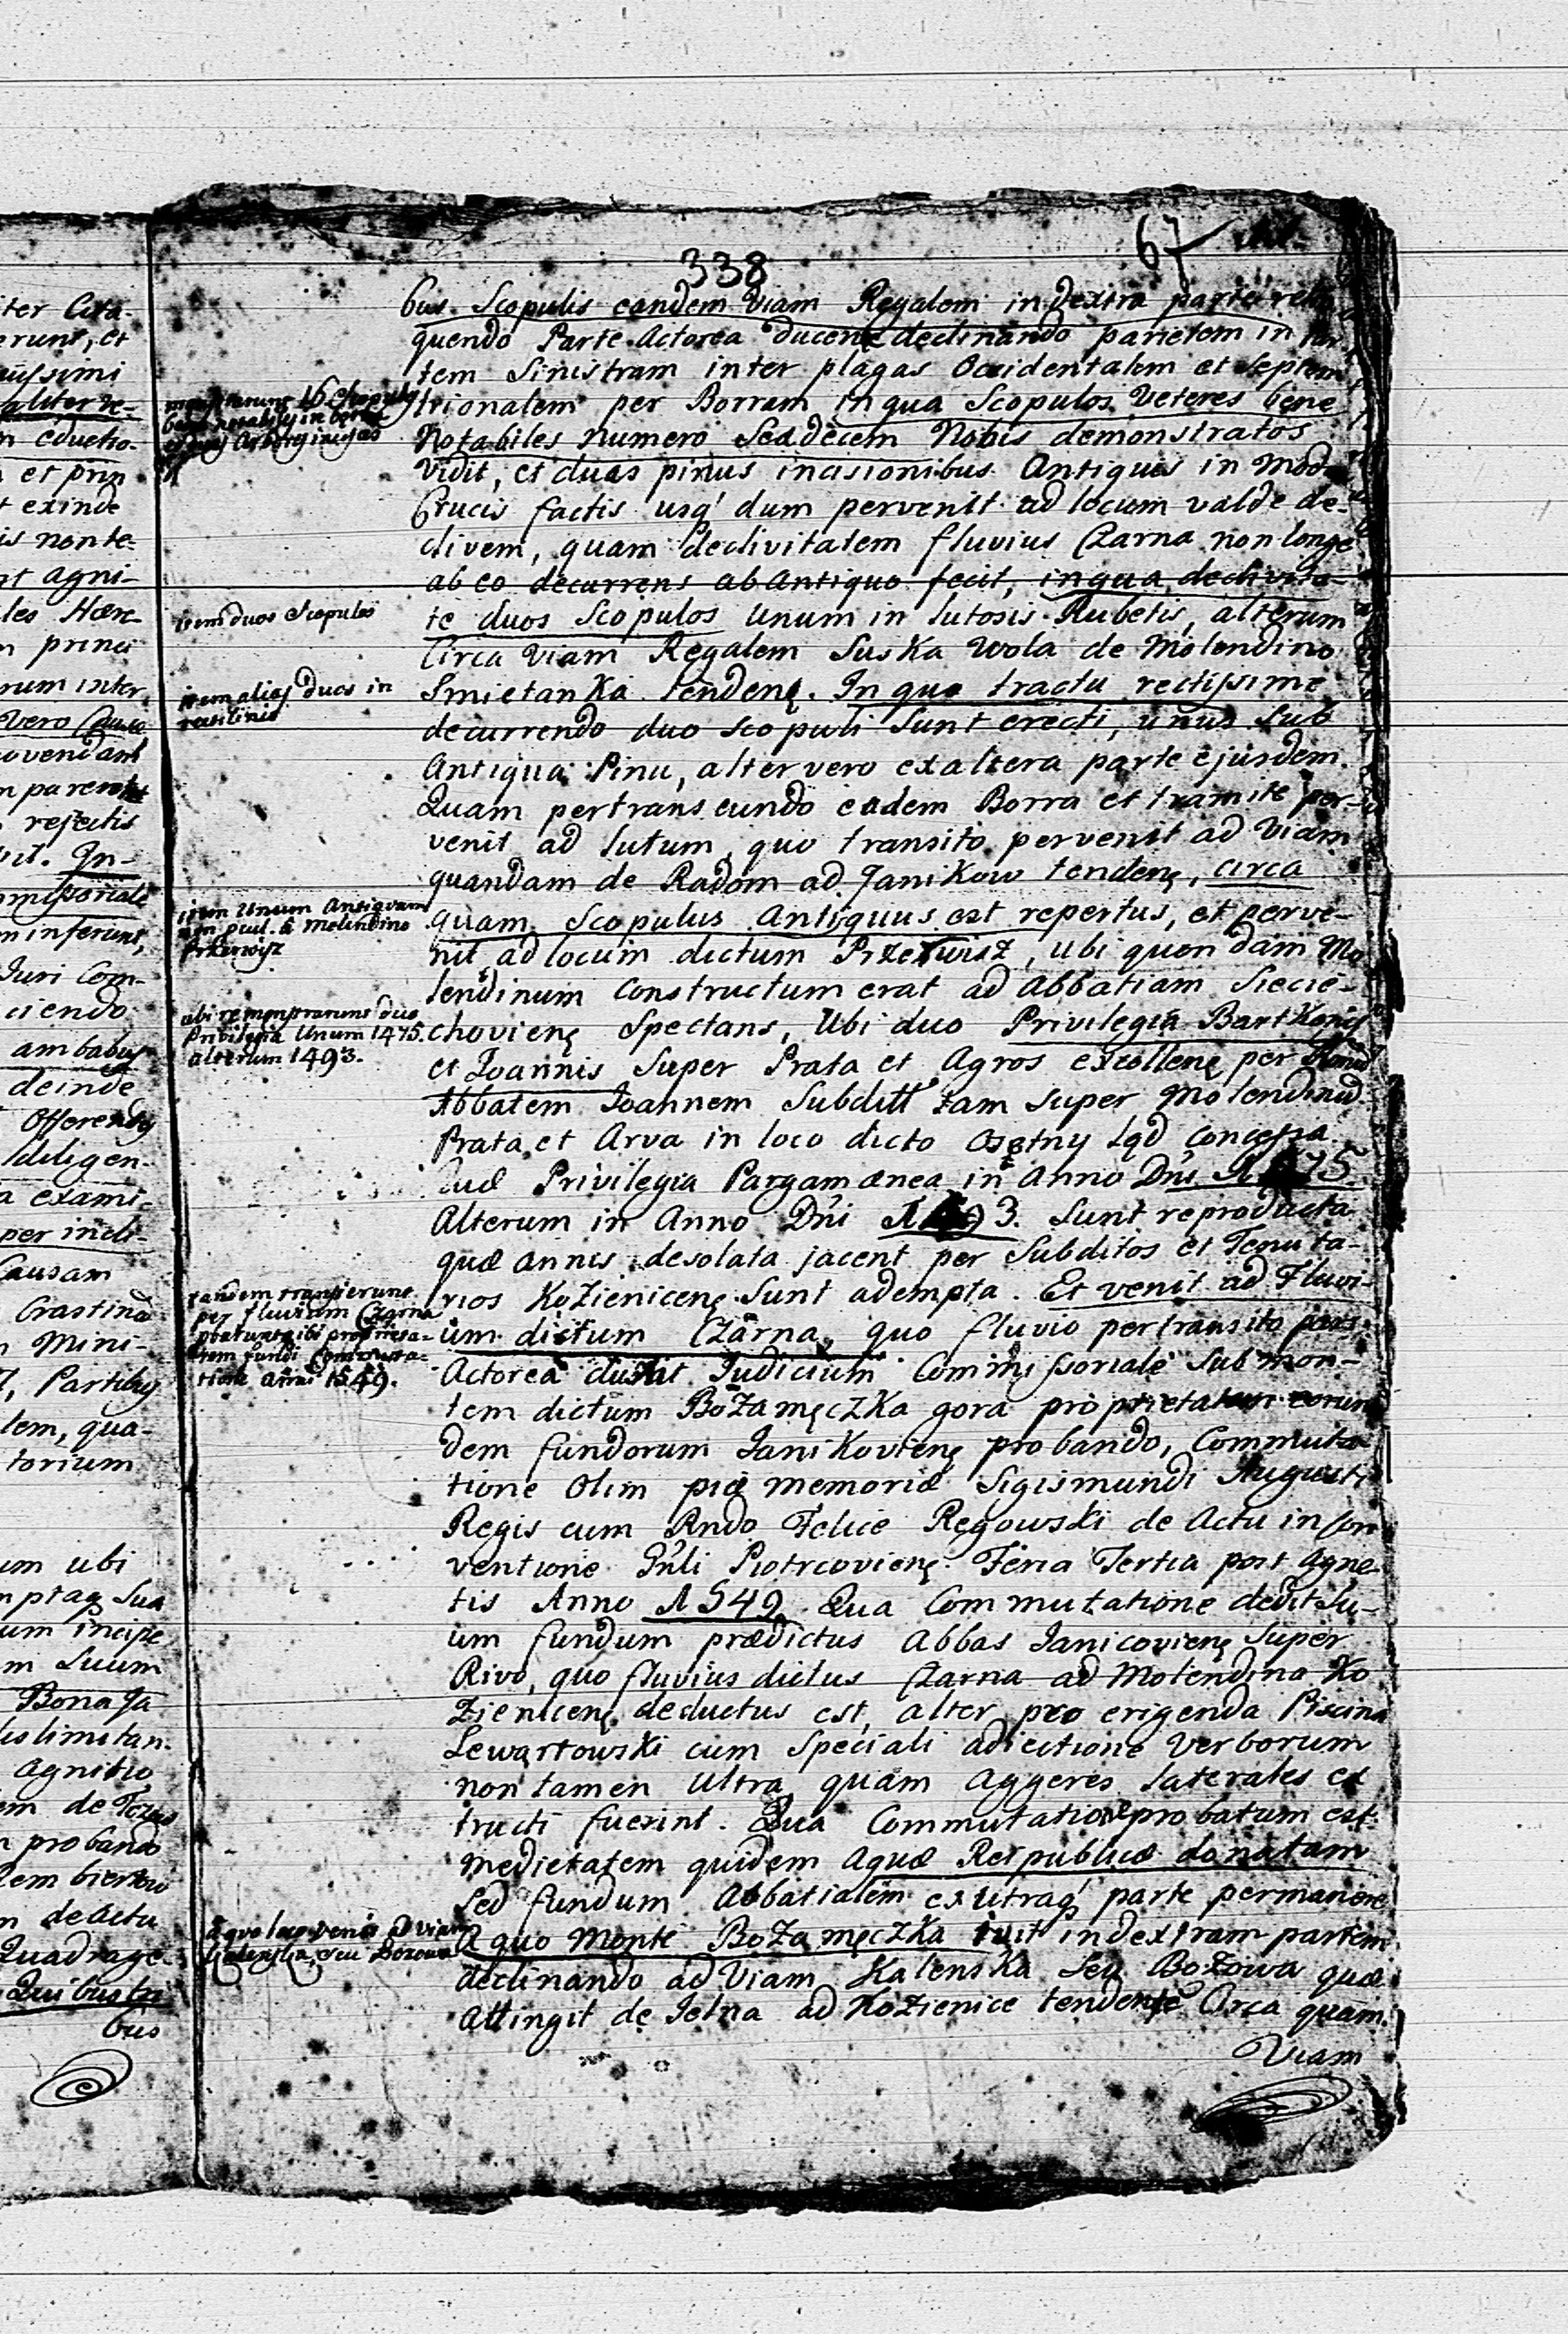 338
67
bus Scopulis eandem Viam Regalem in dextra parte relin
quendo Parte Actorea ducen̨ declinando parietem in par
tem Sinistram inter plagas Occidentalem et Septem
trionalem per Borram in qua Scopulos Veteres bene
Notabiles numero Sexdecem Nobis demonstratos
Vidit, et duas pinus incisionibus Antiquis in modum
Crucis factis usq' dum pervenit ad locum valde de-
clivem, quam declivitatem fluvius Czarna non longe
ab eo decurrens ab Antiquo fecit, in qua declivita-
te duos Scopulos Unum in lutosis Rubetis, alterum
Circa Viam Regalem Suska Wola de Molendino
Smietanka tenden̨. In quo tractu rectissime
decurrendo duo scopuli sunt erecti, unus sub
Antiqua Pinu, alter vero ex altera parte ejusdem.
Quam pertranseundo eadem Borra et tramite per-
venit ad lutum, quo transito pervenit ad Viam
quandam de Radom ad Janikow tenden̨, circa
quam Scopulus Antiquus est repertus, et perve-
nit ad locum dictum Przewisz, Ubi quondam Mo
lendinum Constructum erat ad Abbatiam Siecie-
chovien̨ Spectans, Ubi duo Privilegia Bartkonis
et Joannis Super Prata et Agros excellen̨ per
Abbatem Joannem Subditt tam super Molendinũ
Prata et Arva in loco dicto Osętny Ląd concessa
Quæ Privilegia Pargamænea in Anno Dni 1475.
Alterum in Anno Dni 1493. Sunt reproducta
quæ annis desolata jacent per Subditos et Tenuta-
rios Kozienicen̨ Sunt adempta. Et venit ad Fluvi-
um dictum Czarna, quo fluvio pertransito pars
Actorea duxit Judicium Commissoriale sub mon-
tem dictum Boża męczka gora proprietatem eorun
dem fundorum Janikovien̨ probando, Commuta
tione Olim piæ memoriæ Sigismundi Augusti
Regis cum Rndo Felice Regowski de Actu in Con
ventione Gńli Piotrcovien̨ Feria Tertia post Agne-
tis Anno 1549. Qua Commutatione dedit Su-
um fundum prædictus Abbas Janicovien̨ Super
Rivo, quo fluvius dictus Czarna ad Molendina Ko
zienicen̨ deductus est, alter pro erigenda Piscina
Lewartowski cum Speciali adiectione Verborum
non tamen Ultra quam Aggeres laterales ex
tructi fuerint. Qua Commutatione probatum est
medietatem quidem Aquæ Reipublicæ donatam
Sed fundum Abbatialem ex utraq' parte permanere
A quo Monte Boża męczka ivit in dextram partem
declinando ad Viam Kalenska Seu Bożowa quæ
Attingit de Jelna ad Kozienice tendente Circa quam
Viam
monstrarunt 16 Scopulos
bene notabiles in borra
et duas Arbores incisas
item duos Scopulos
item alios duos in
rectilinio
item Unum Antiquum
non pcul. à Molendino
Przewisz
ubi remonstrarunt duo
Privilegia Unum 1475.
alterum 1493.
tandem transierunt
per fluvium Czarna
probantq ibi proprieta-
tem fundi Commuta-
tione Anni 1549.
à quo loco venit ad viam
Kalenska, seu Bozowa
iter Cita-
erunt, et
uissimi
aliter re-
n eductio-
et prin
t exinde
is non te-
nt Agni-
les Hære-
princi
rum inter
Vero Causa
ovendam
n parent
rejectis
In-
missoriale
n inferunt,
Juri Com-
ciendo
ambabus
deinde
Offerendis
diligen-
a exami-
per incli-
Causam
Crastina
Mini-
, Partibus
lem, qua-
torium
um ubi
mptas Sua
um incipe
m Suum
Bona Ja
us limitan-
Agnitio
em de
n probando
n de Actu
Quadrage-
Quibus tri
bus